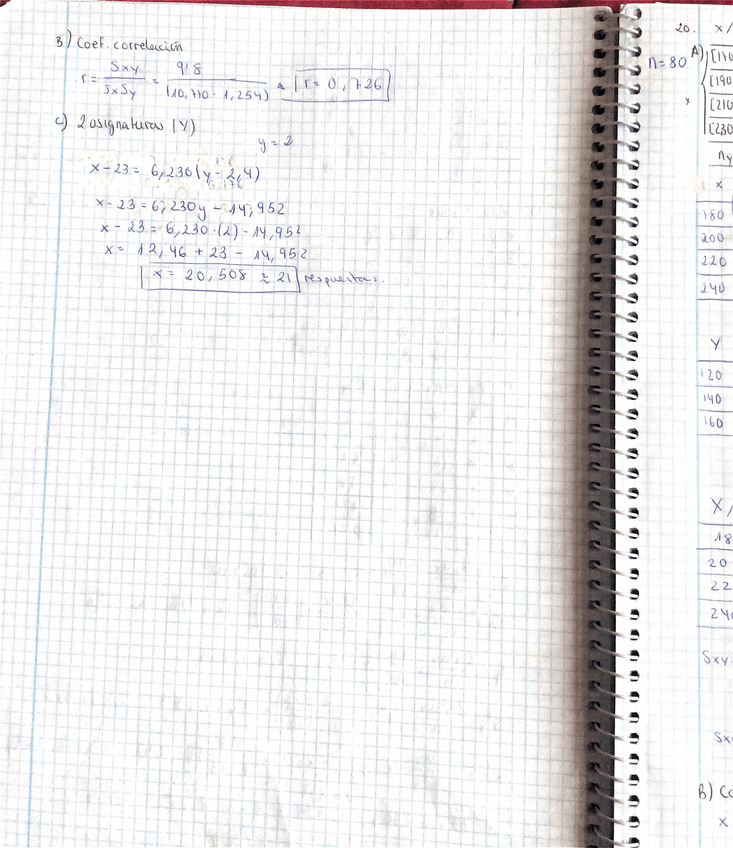 B) Coef. correlación
r = Sxy / SxSy = 9'8 / (10,770 · 1,254) r = 0,726
c) 2 asignaturas (Y)
y = 2
x - 23 = 6,230 (y - 2,4)
x - 23 = 6,230y - 14,952
x - 23 = 6,230 · (2) - 14,952
x = 12,46 + 23 - 14,952
x = 20,508 ≈ 21 respuestas.
20. x/
n = 80 A) [170
[190
x [210
[230
ny
x
180
200
220
240
Y
120
140
160
X/
18
20
22
240
Sxy
Sx
B) Co
x